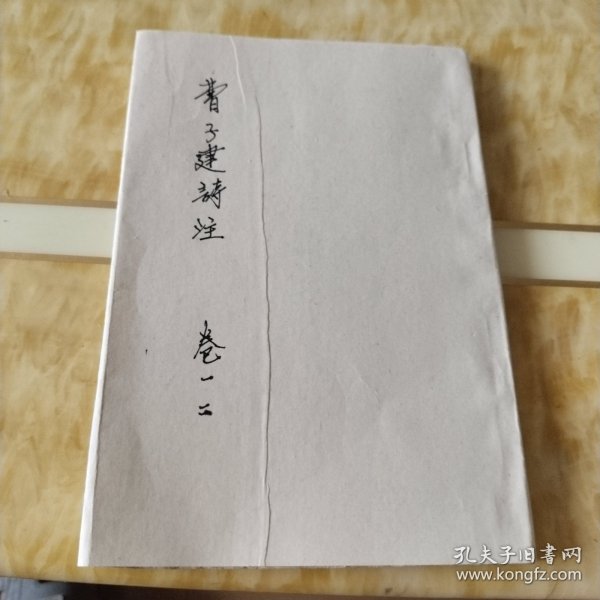 曹子建詩注 卷一二
孔夫子旧書网
www.kongfz.com